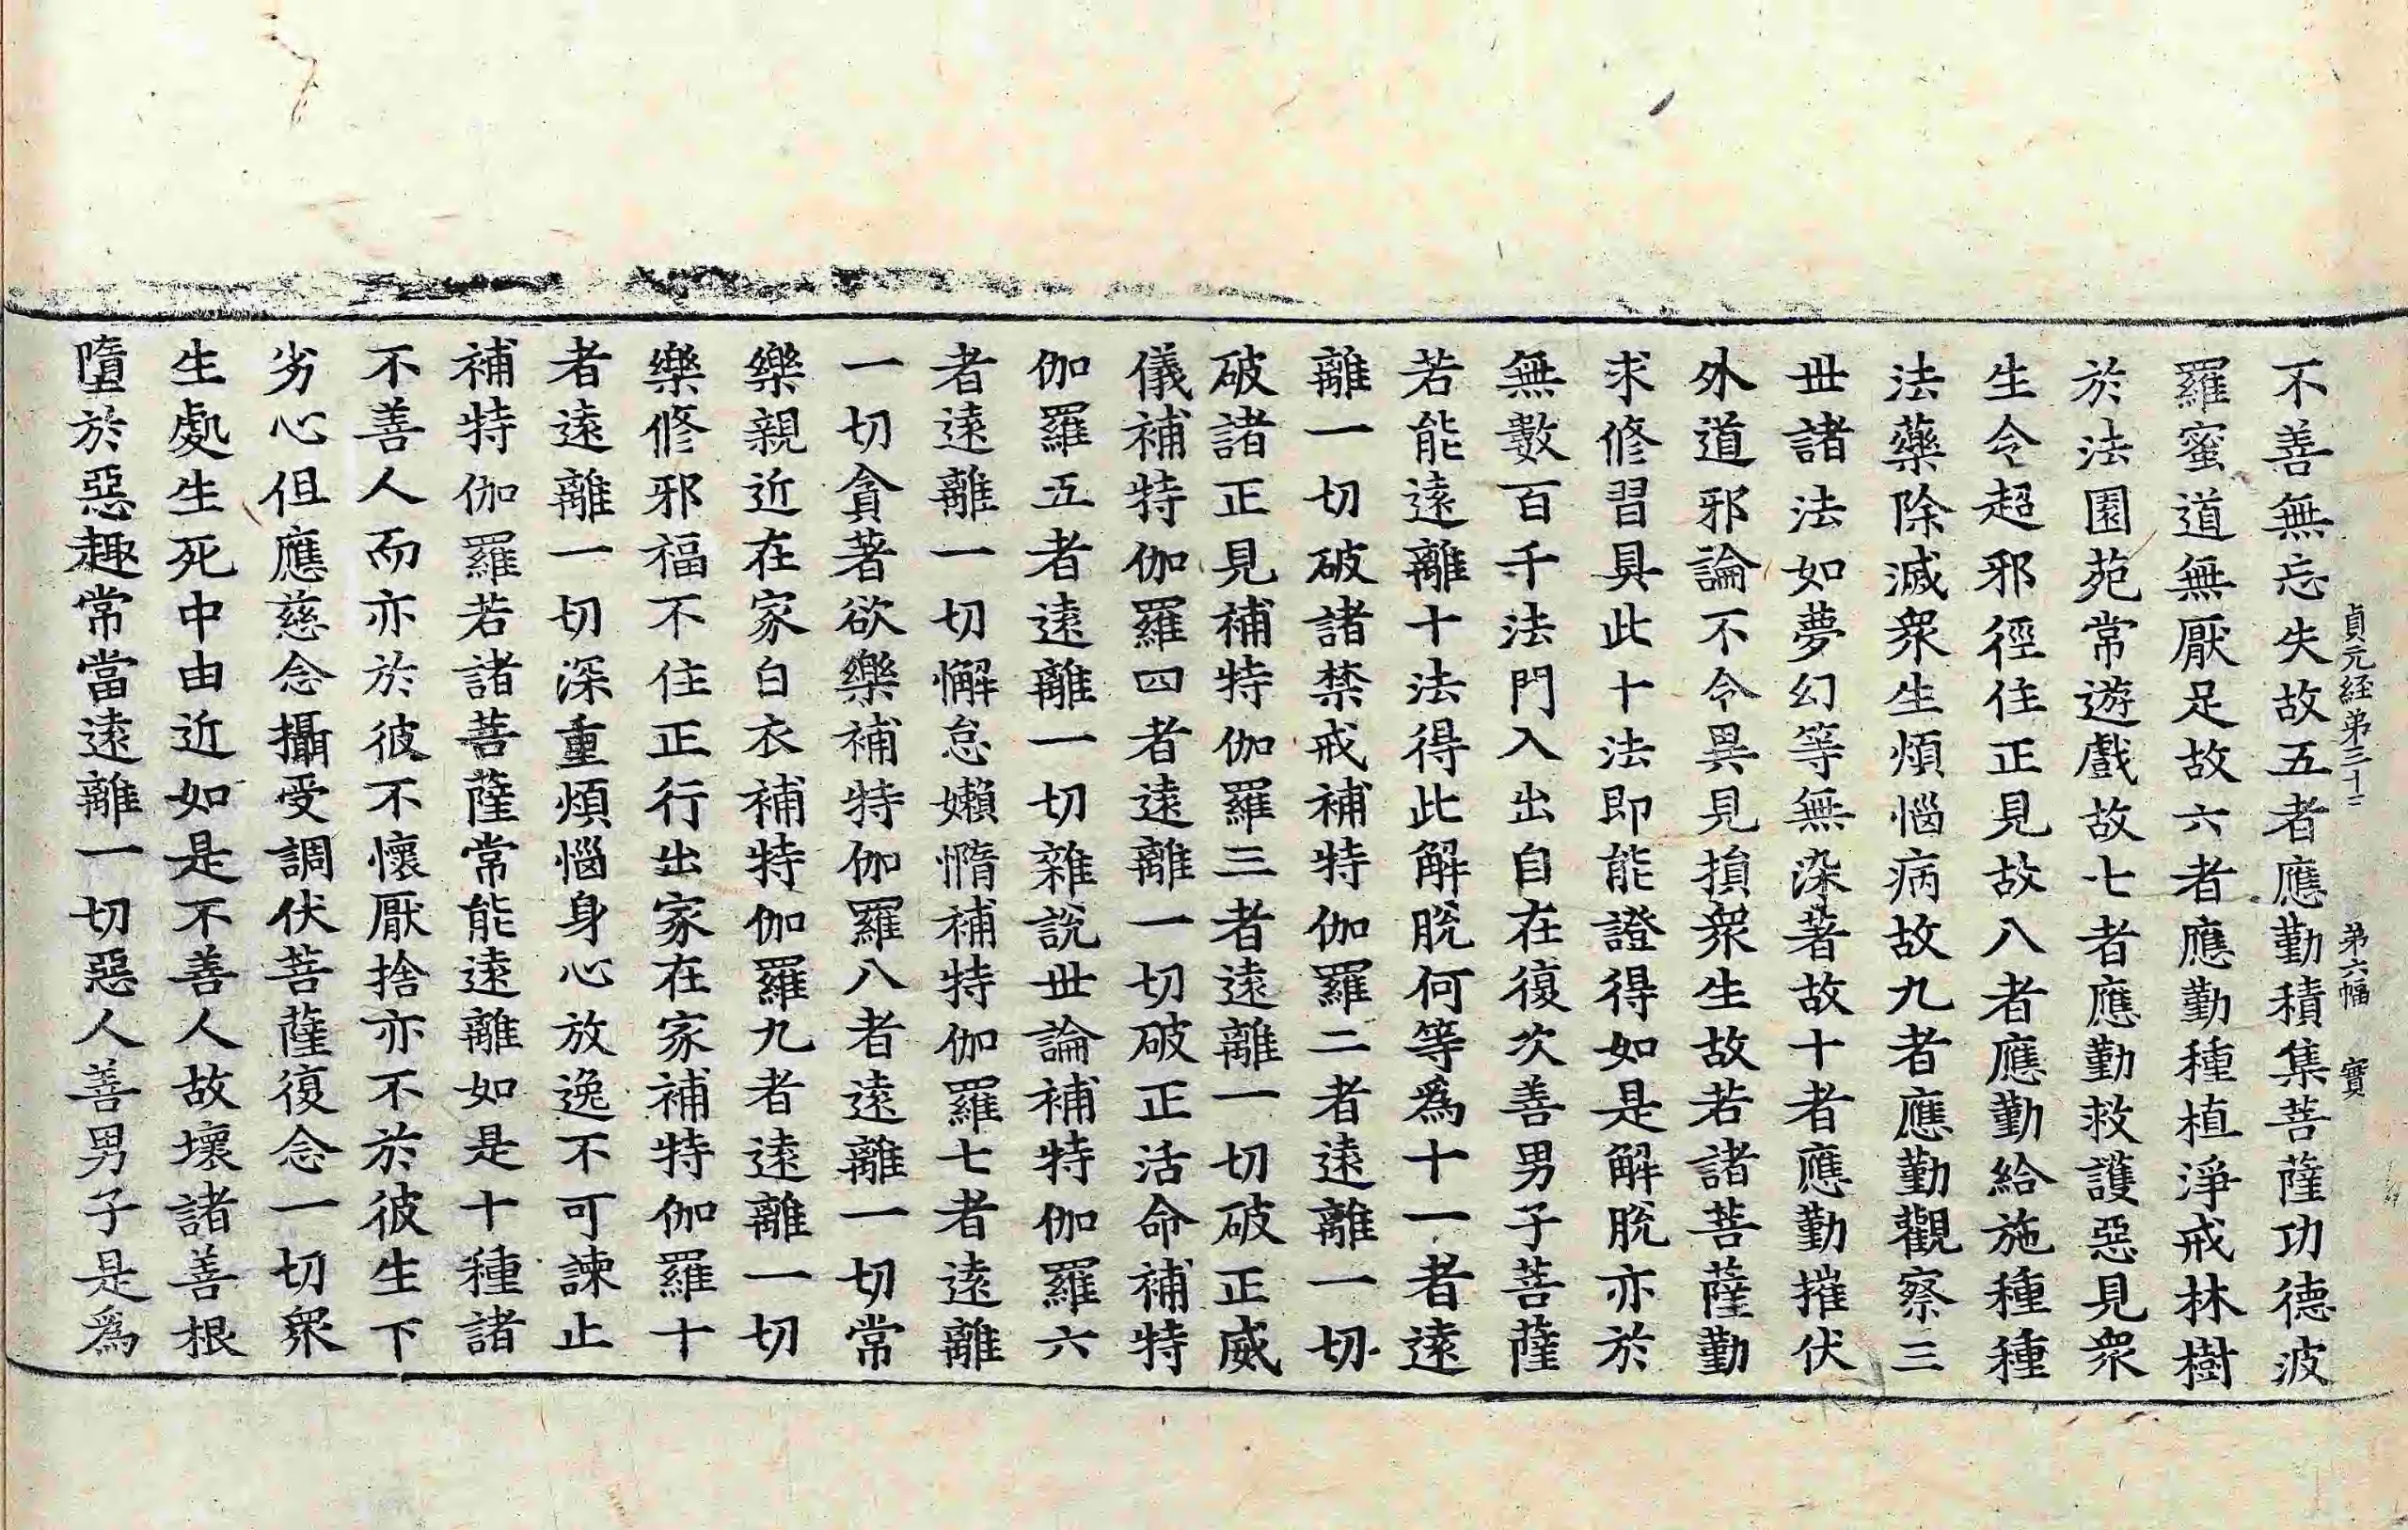 貞元経弟三十二 弟六幅 實
不善無忘失故五者應勤積集菩薩功德波
羅蜜道無厭足故六者應勤種植淨戒林樹
於法園苑常遊戲故七者應勤救護惡見衆
生令超邪徑住正見故八者應勤給施種種
法藥除滅衆生煩惱病故九者應勤觀察三
世諸法如夢幻等無染著故十者應勤摧伏
外道邪論不令異見損衆生故若諸菩薩勤
求修習具此十法即能證得如是解脫亦於
無數百千法門入出自在復次善男子菩薩
若能遠離十法得此解脫何等爲十一者遠
離一切破諸禁戒補特伽羅二者遠離一切
破諸正見補特伽羅三者遠離一切破正威
儀補特伽羅四者遠離一切破正活命補特
伽羅五者遠離一切雜說世論補特伽羅六
者遠離一切懈怠嬾惰補特伽羅七者遠離
一切貪著欲樂補特伽羅八者遠離一切常
樂親近在家白衣補特伽羅九者遠離一切
樂修邪福不住正行出家在家補特伽羅十
者遠離一切深重煩惱身心放逸不可諫止
補特伽羅若諸菩薩常能遠離如是十種諸
不善人而亦於彼不懷厭捨亦不於彼生下
劣心但應慈念攝受調伏菩薩復念一切衆
生處生死中由近如是不善人故壞諸善根
墮於惡趣常當遠離一切惡人善男子是爲